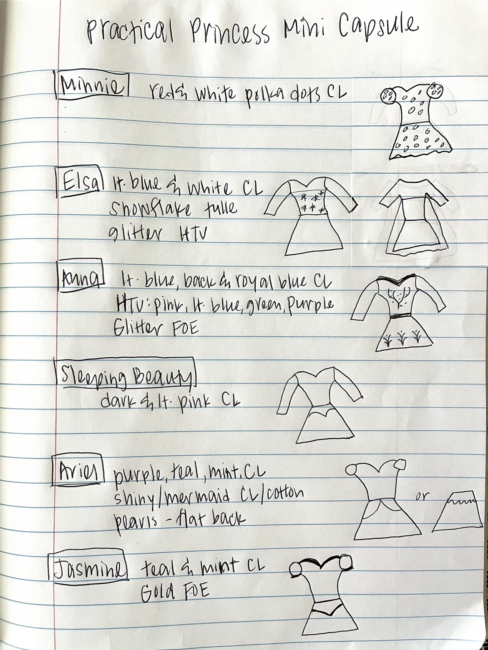 Practical Princess Mini Capsule
Minnie red & white polka dots CL
Elsa lt. blue & white CL
snowflake tulle
glitter HTV
Anna lt. blue, back & royal blue CL
HTV: pink, lt. blue, green, purple
Glitter FOE
Sleeping Beauty
dark & lt. pink CL
Ariel purple, teal, mint CL
shiny/mermaid CL/cotton
or
pearls - flat back
Jasmine teal & mint CL
Gold FOE